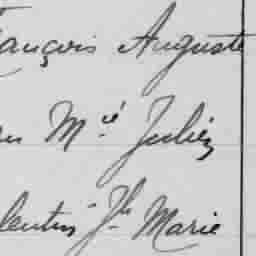 ançois Auguste
M.ié Julien
lentin Jh Marie